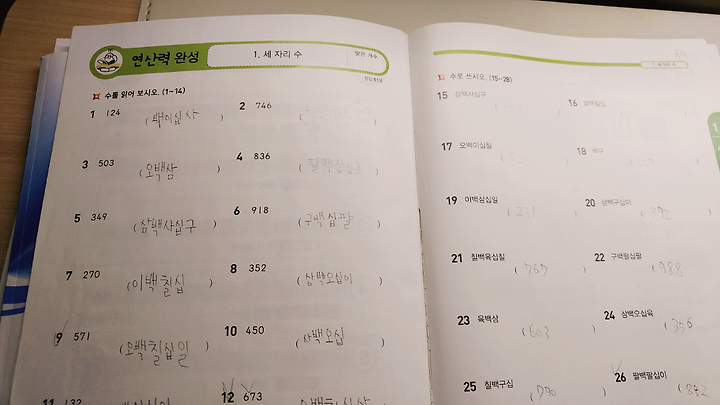 연산력 완성
1. 세 자리 수
맞은 개수
수를 읽어 보시오. (1~14)
1 124 (백이십사)
2 746 ( )
3 503 (오백삼)
4 836 ( )
5 349 (삼백사십구)
6 918 (구백십팔)
7 270 (이백칠십)
8 352 (삼백오십이)
9 571 (오백칠십일)
10 450 (사백오십)
11 132
12 673
수로 쓰시오. (15~28)
15 삼백사십구
16
17 오백이십칠
18
19 이백삼십일 (231)
20 삼백구십이 (392)
21 칠백육십칠 (767)
22 구백팔십팔 (988)
23 육백삼 (603)
24 삼백오십육 (356)
25 칠백구십 (790)
26 팔백팔십이